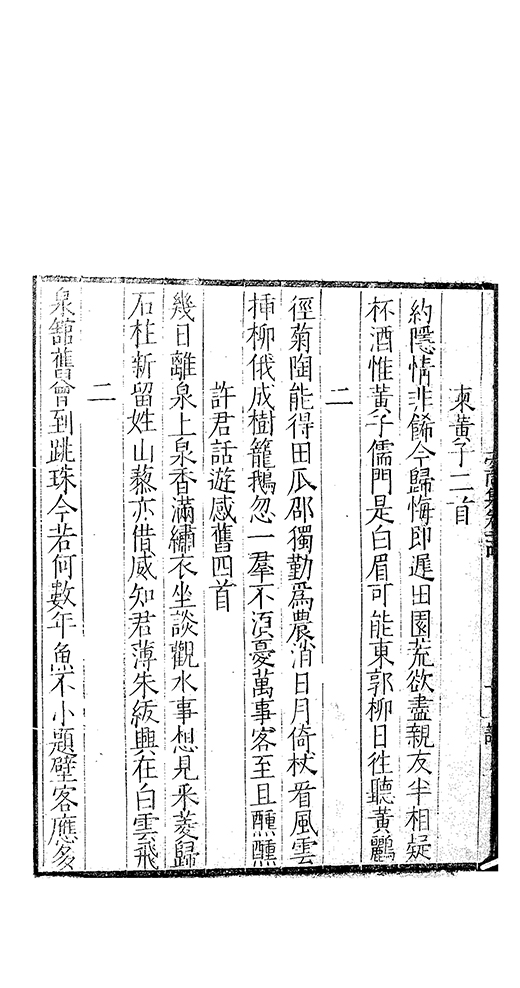 柬黃子二首
約隱情非餙今歸悔即遲田園荒欲盡親友半相疑
杯酒惟黃子儒門是白眉可能東郭柳日徃聽黃鸝
二
徑菊陶能得田瓜邵獨勤爲農消日月倚杖看風雲
揷柳俄成樹籠鵝忽一羣不湏憂萬事客至且醺醺
許君話遊感舊四首
幾日離泉上泉香滿繡衣坐談觀水事想見采菱歸
石柱新留姓山藜亦借威知君薄朱紱興在白雲飛
二
泉舘舊曾到跳珠今若何數年魚不小題壁客應多